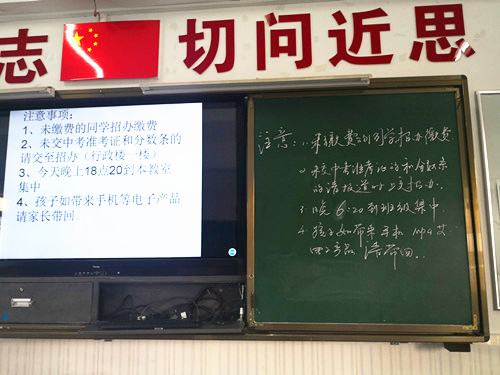 志 切问近思
注意事项:
1、未缴费的同学招办缴费
2、未交中考准考证和分数条的
请交至招办（行政楼一楼）
3、今天晚上18点20到本教室
集中
4、孩子如带来手机等电子产品
请家长带回.
注意: 1. 未缴费的到学招办缴费
2. 未交中考准考证和分数条
的请 上交招办.
3 晚6:20到班级集中
4. 孩子如带来手机 mp4 
电子产品 请带回.